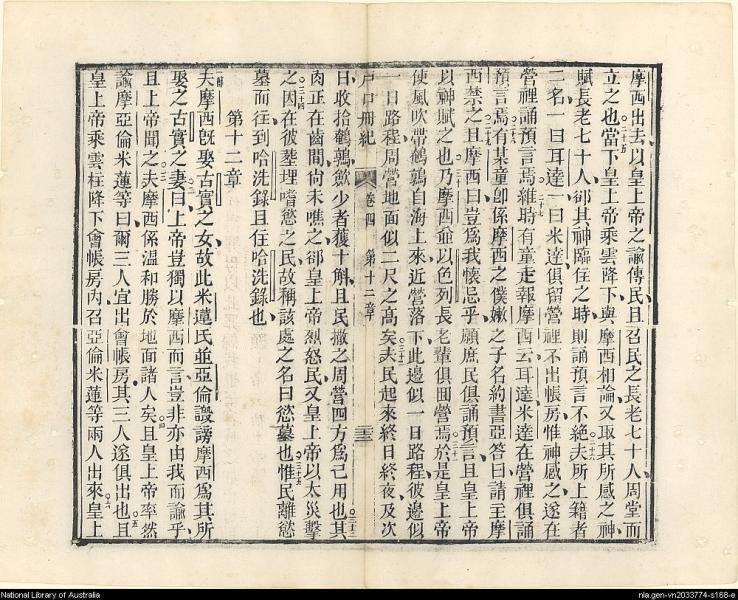 摩西出去以皇上帝之諭傳民且召民之長老七十人周堂而
立之也○二十五當下皇上帝乘雲降下與摩西相論又取其所感之神
賦長老七十人卻其神臨在之時則誦預言不絕○二十六夫所上籍者
二名一曰耳達一曰米達俱留營裡不出帳房惟神感之遂在
營裡誦預言焉○二十七維時有童走報摩西云耳達米達在營裡俱誦
預言焉○二十八有某童卽係摩西之僕嫩之子名約書亞答曰請主摩
西禁之○二十九且摩西曰豈爲我懷忌乎願庶民俱誦預言且皇上帝
以神賦之也○三十乃摩西爺以色列長老輩俱回營焉○三十一於是皇上帝
使風吹帶鵪鶉自海上來近營落下此邊似一日路程彼邊似
一日路程周營地面似二尺之高矣○三十二夫民起來終日終夜及次
戶口冊紀 卷四 第十二章 二三
日收拾鵪鶉歛少者獲十斛且民撒之周營四方爲己用也○三十三其
肉正在齒間尙未嚥之卻皇上帝烈怒民又皇上帝以太災擊
之○三十四因在彼塟埋嗜慾之民故稱該處之名曰慾墓也○三十五惟民離慾
墓而往到哈洗錄且住哈洗錄也
第十二章
夫摩西旣娶古實之女故此米蓮氏並亞倫譭謗摩西爲其所
娶之古實之妻○二曰上帝豈獨以摩西而言豈非亦由我而諭乎
且上帝聞之○三夫摩西係溫和勝於地面諸人矣○四且皇上帝率然
諭摩亞倫米蓮等曰爾三人宜出會帳房其三人遂俱出也○五且
皇上帝乘雲柱降下會帳房內召亞倫米蓮等兩人出來○六皇上
National Library of Australia
nla.gen-vn2033774-s168-e